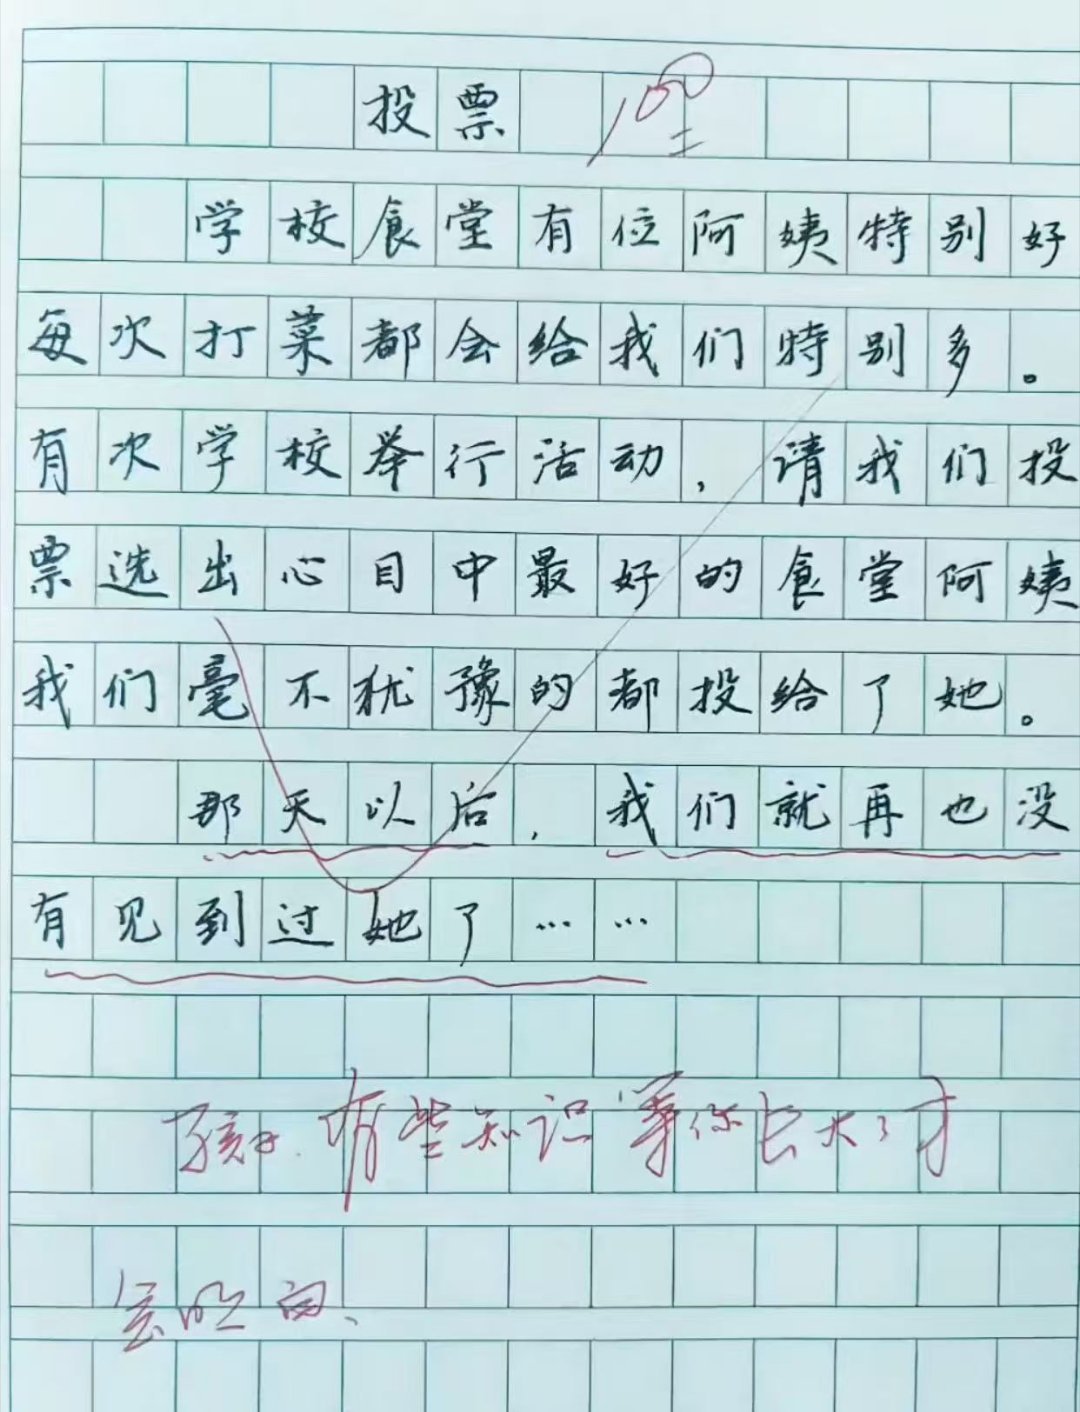 投票 100
学校食堂有位阿姨特别好
每次打菜都会给我们特别多。
有次学校举行活动，请我们投
票选出心目中最好的食堂阿姨
我们毫不犹豫的都投给了她。
那天以后，我们就再也没
有见到过她了……
孩子.有些知识等你长大了才
会明白、